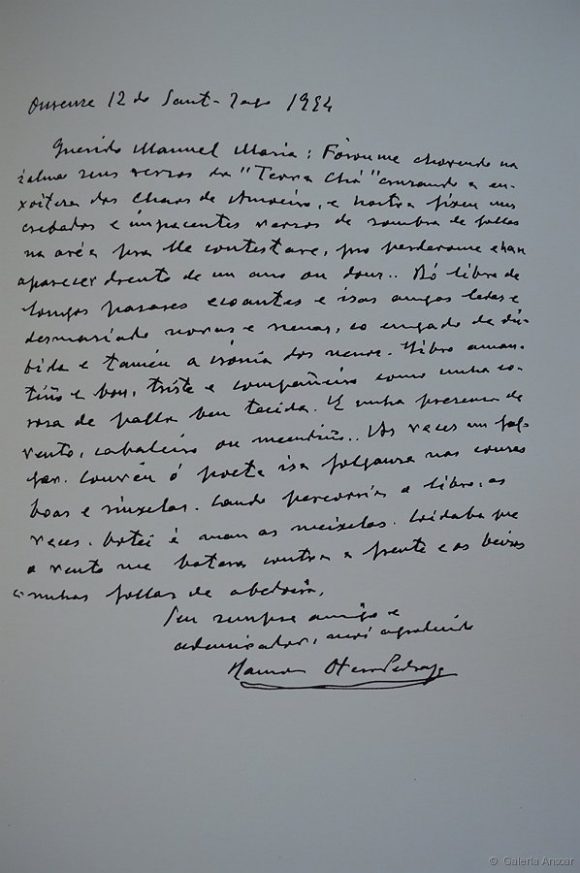 Ourense 12 de Sant-Yago 1954
Querido Manuel Maria: Fóronme chovendo na
i-alma seus versos da "Terra Chá" cruzando a en-
xoitera das Chaos de Amoeiro, e nostra fixen uns
crebados e impacentes versos de sombra de follas
na aréa pra lle contestare, pro perdéronme e han
aparecer drento de un ano ou dous.. Bó libro de
longos pasares ecoantes e isas amigas ledas e
desmasiado novas e nenas, co engado da dú-
bida e tamén a ironia dos nenos. Libro aman-
tiño e bon, triste e compañeiro como unha co-
roza de palla ben tecida. E unha presenza de
vento, cabaleiro ou mendiño.. As veces un fol-
gar. Convén ó poeta isa folganza nas cousas
boas e sinxelas. Cando percorría o libro, as
veces, botei a man as meixelas. Coidaba que
o vento me batera contra a frente e os beizos
c-unhas follas de abeloira.
Seu sempre amigo e
admirador, moi agradecido
Ramon Otero Pedrayo
© Galería Anscar